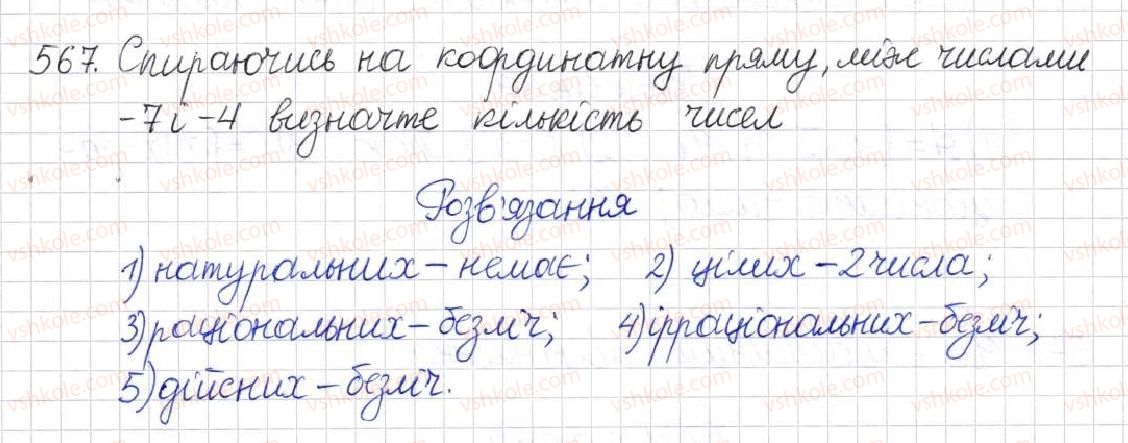 567. Спираючись на координатну пряму, між числами
-7 і -4 визначте кількість чисел
Розв'язання
1) натуральних – немає; 2) цілих – 2 числа;
3) раціональних – безліч; 4) ірраціональних – безліч;
5) дійсних – безліч.